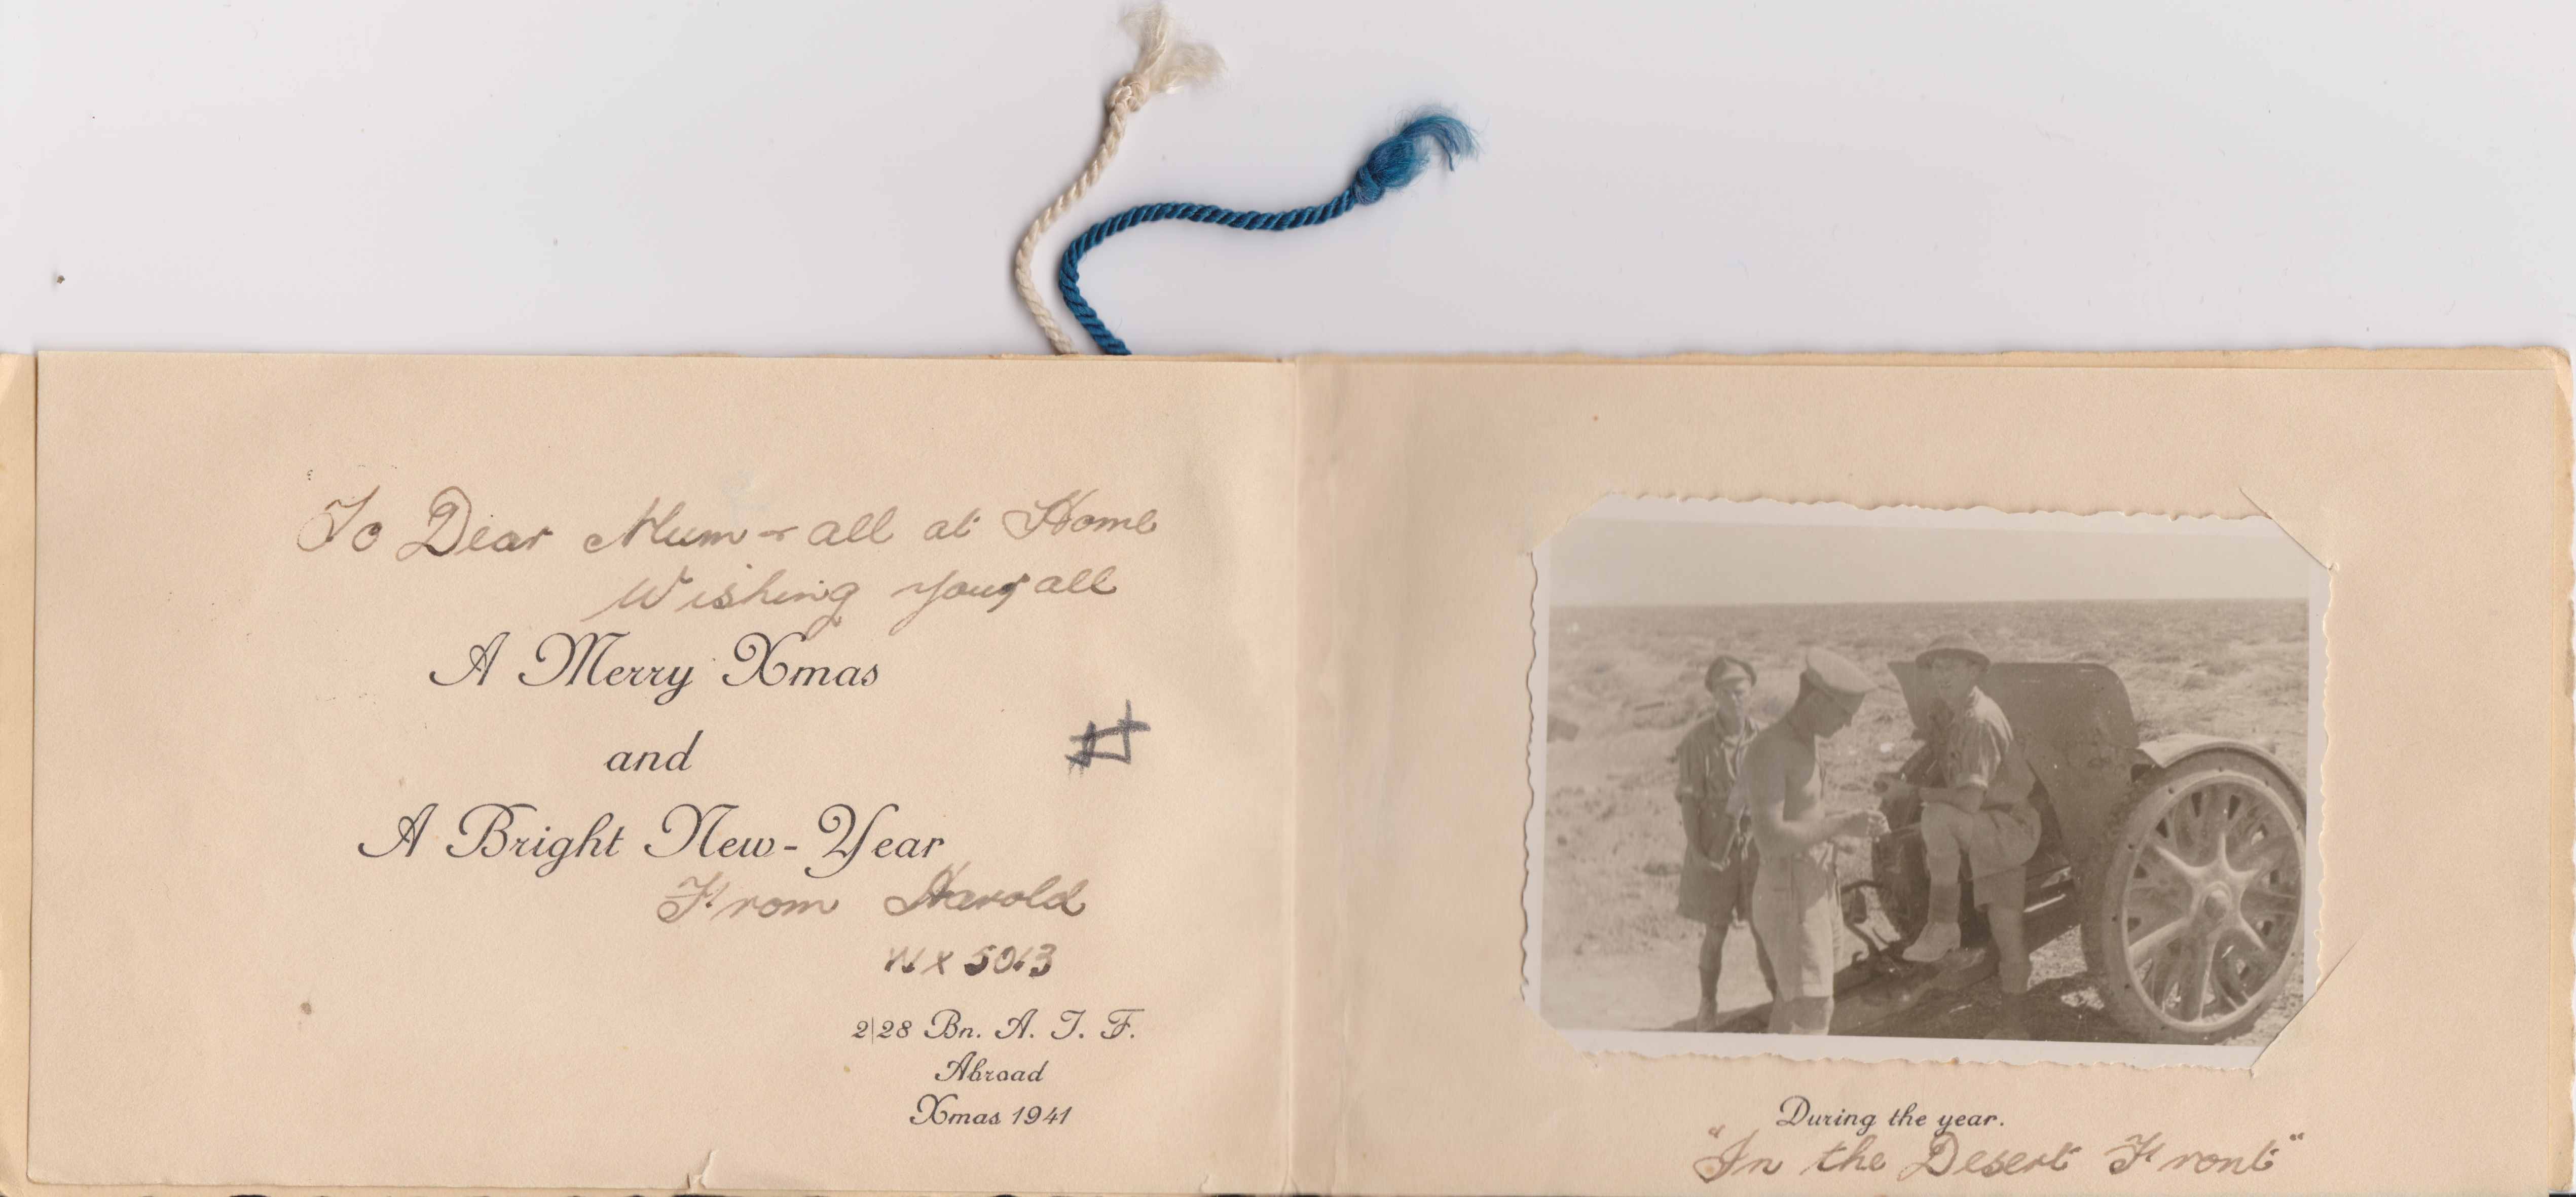 To Dear Mum & all at Home
Wishing you all
A Merry Xmas
and
A Bright New-Year
From Harold
WX 5013
2|28 Bn. A. I. F.
Abroad
Xmas 1941
#
During the year.
"In the Desert Front"